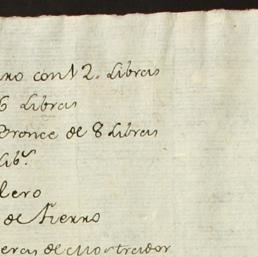 no con 12. libras
6 libras
Bronce de 8 libras
lib.ˢ
lero
de fierro
eras de Mostrador